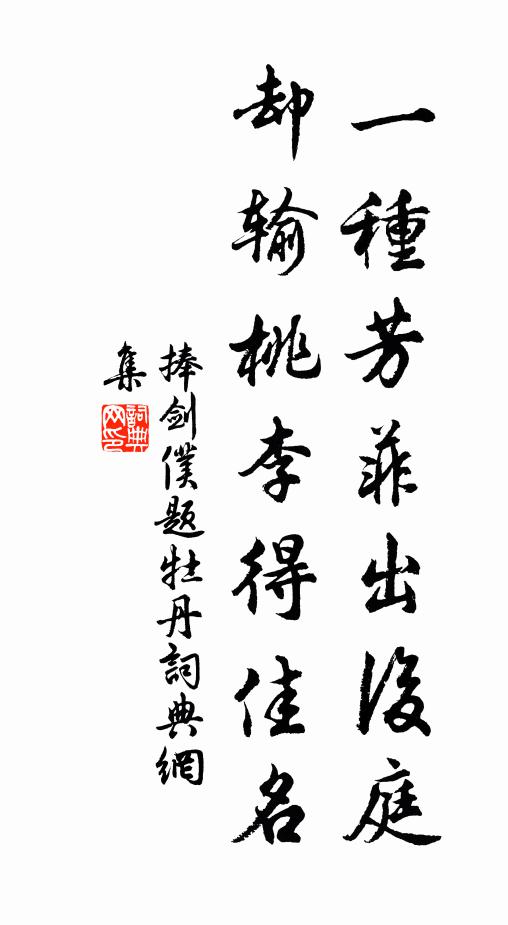 一種芳菲出後庭
却輸桃李得佳名
捧劍僕題牡丹詞典網
集
詞典
网印